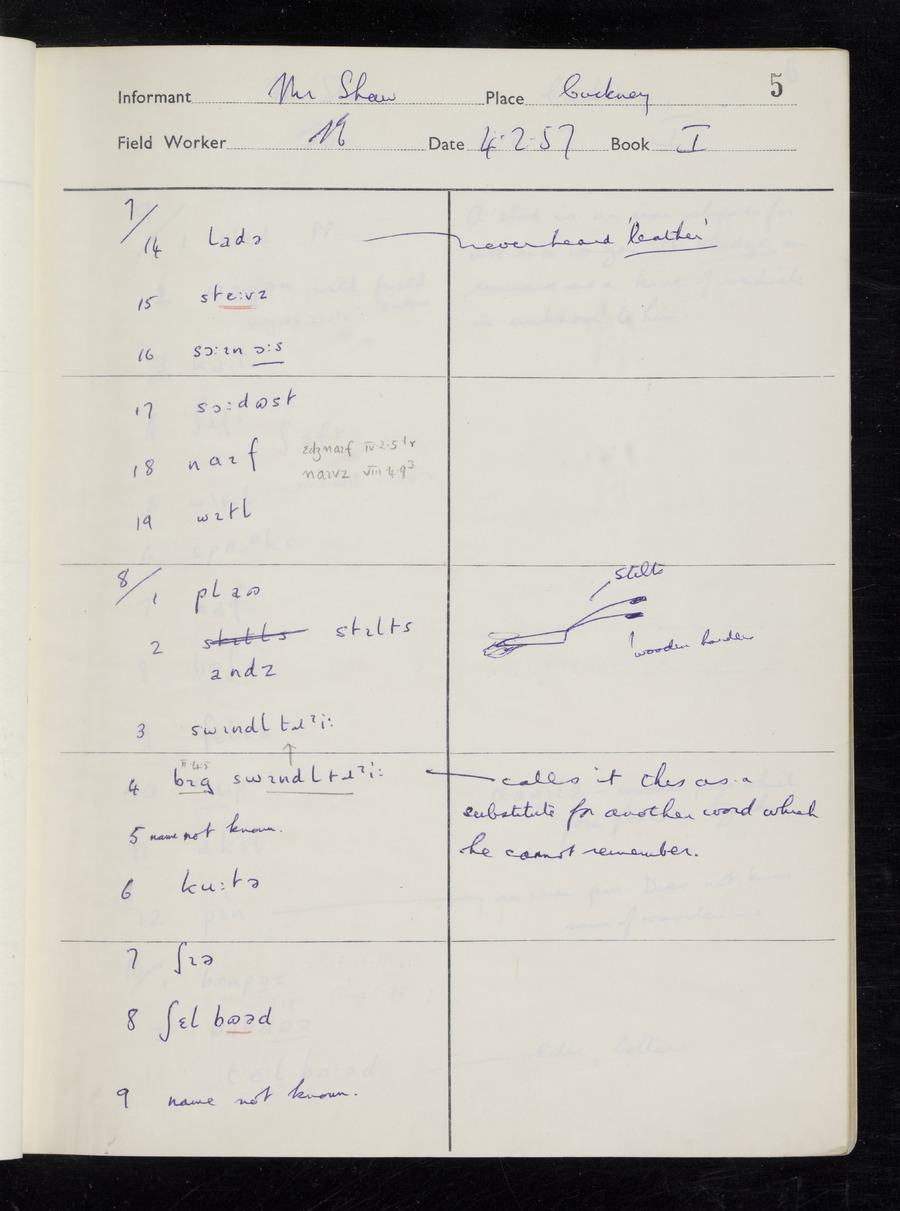 5
Informant Mr Shaw Place Cuckney
Field Worker Date 4·2·57 Book I
7/14 ladə never heard 'leather'
15 ste:ɪvz
16 sɔ:ɪn ɔ:s
17 sɔ:dʊst
18 naɪf ɛdʒnaɪf IV·2·5
naɪvz VIII·4·9³
19 wɪtl
8/1 plaʊ stilts
2 stɪlts stɪlts
andz wooden
3 swɪndl tɹɪi:
II·4·5
4 bɪg swɪndl tɹɪi: calls it this as a
substitute for another word which
he cannot remember.
5 name not known.
6 ku:tə
7 ʃɪə
8 ʃɛl bʊəd
9 name not known.